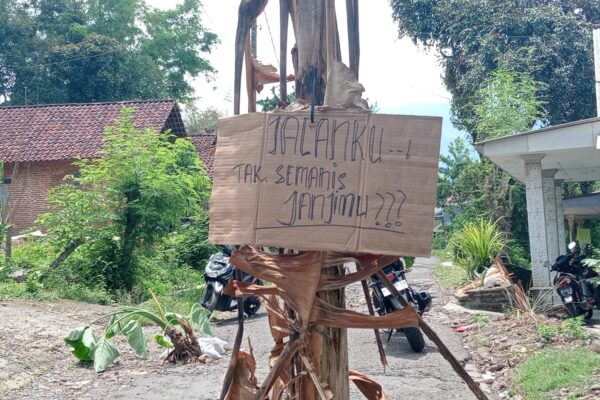 JALANKU--!
TAK SEMANIS
JANJIMU???